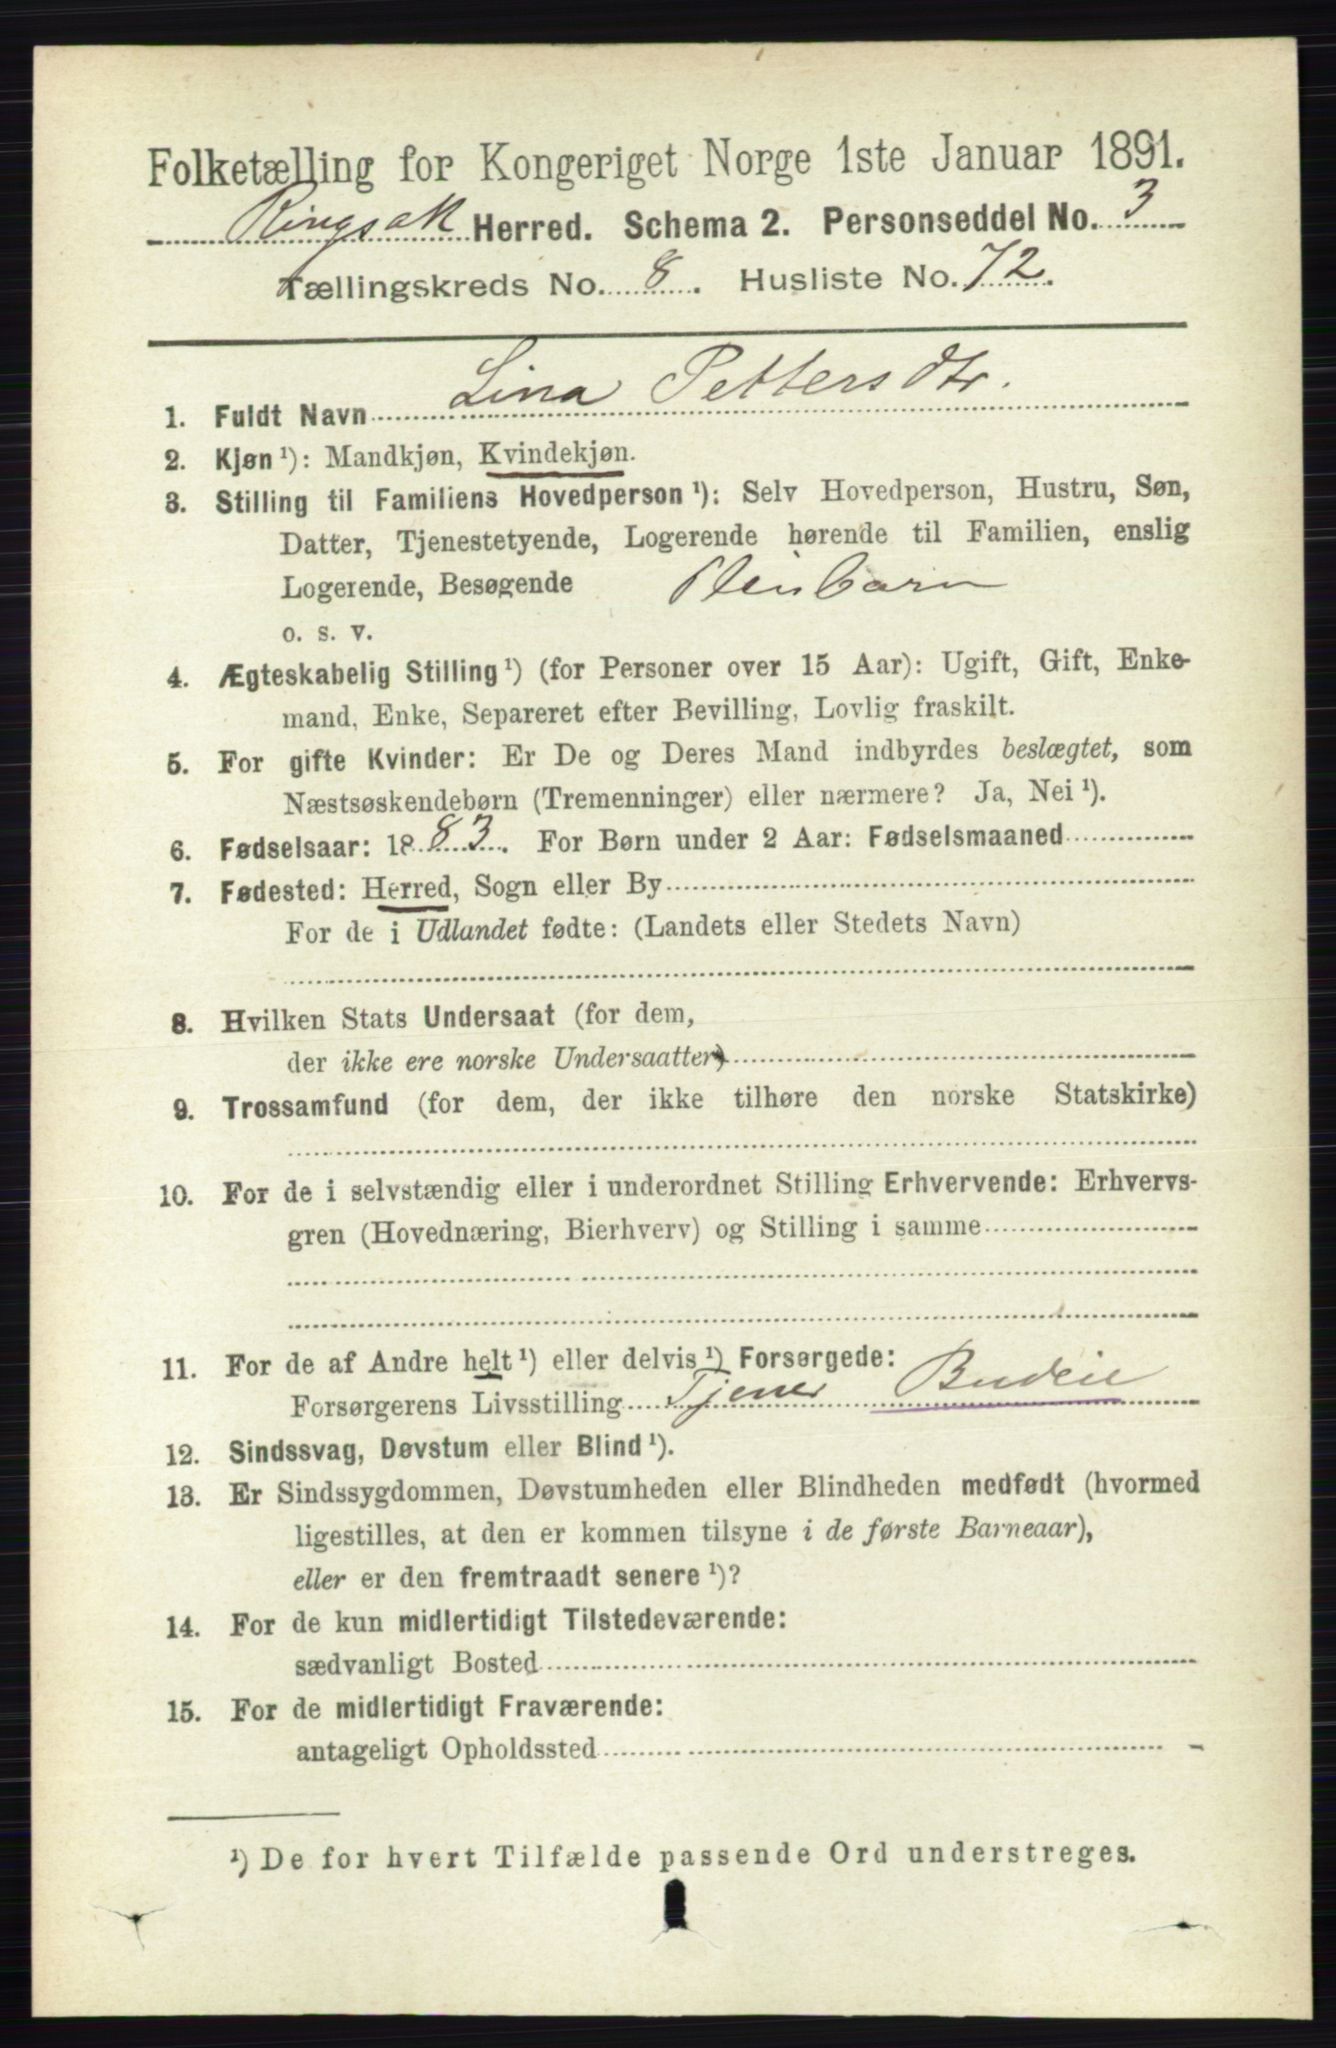 Folketælling for Kongeriget Norge 1ste Januar 1891.
Ringsak Herred. Schema 2. Personseddel No. 3
Tællingskreds No. 8. Husliste No. 72.
1. Fuldt Navn Lina Pettersdtr.
2. Kjøn¹): Mandkjøn, Kvindekjøn.
3. Stilling til Familiens Hovedperson¹): Selv Hovedperson, Hustru, Søn,
Datter, Tjenestetyende, Logerende hørende til Familien, enslig
Logerende, Besøgende Pleiebarn
o. s. v.
4. Ægteskabelig Stilling¹) (for Personer over 15 Aar): Ugift, Gift, Enke-
mand, Enke, Separeret efter Bevilling, Lovlig fraskilt.
5. For gifte Kvinder: Er De og Deres Mand indbyrdes beslægtet, som
Næstsøskendebørn (Tremenninger) eller nærmere? Ja, Nei¹).
6. Fødselsaar: 1883. For Børn under 2 Aar: Fødselsmaaned
7. Fødested: Herred, Sogn eller By
For de i Udlandet fødte: (Landets eller Stedets Navn)
8. Hvilken Stats Undersaat (for dem,
der ikke ere norske Undersaatter)
9. Trossamfund (for dem, der ikke tilhøre den norske Statskirke)
10. For de i selvstændig eller i underordnet Stilling Erhvervende: Erhvervs-
gren (Hovednæring, Bierhverv) og Stilling i samme
11. For de af Andre helt¹) eller delvis¹) Forsørgede:
Forsørgerens Livsstilling Tjener Budeie
12. Sindssvag, Døvstum eller Blind¹).
13. Er Sindssygdommen, Døvstumheden eller Blindheden medfødt (hvormed
ligestilles, at den er kommen tilsyne i de første Barneaar),
eller er den fremtraadt senere¹)?
14. For de kun midlertidigt Tilstedeværende:
sædvanligt Bosted
15. For de midlertidigt Fraværende:
antageligt Opholdssted
¹) De for hvert Tilfælde passende Ord understreges.